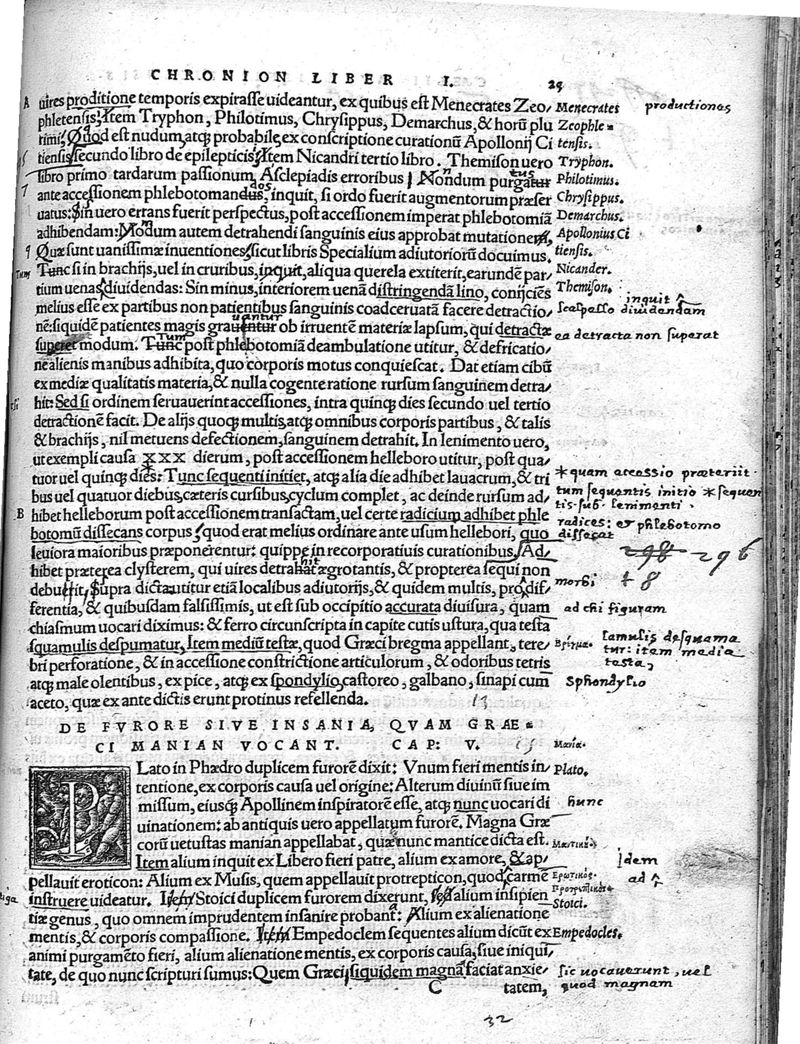 CHRONION LIBER I. 29
A uires proditione temporis expirasse uideantur, ex quibus est Menecrates Zeo/ Menecrates productiones
phletensis; Item Tryphon, Philotimus, Chrysippus, Demarchus, & horũ plu Zeophle=
rimi, Quod est nudum, atq; probabile, ex conscriptione curationũ Apollonij Ci tensis.
tiensis secundo libro de epilepticis, Item Nicandri tertio libro. Themison uero Tryphon.
libro primo tardarum passionum, Asclepiadis erroribus, Nondum purgatur Philotimus.
ante accessionem phlebotomandus, inquit, si ordo fuerit augmentorum præser Chrysippus.
uatus: Sin uero errans fuerit perspectus, post accessionem imperat phlebotomiã Demarchus.
adhibendam: Modum autem detrahendi sanguinis eius approbat mutationem, Apollonius Ci
9 Quæ sunt uanissimæ inuentiones, sicut libris Specialium adiutoriorũ docuimus. tiensis.
Tunc si in brachijs, uel in cruribus, inquit, aliqua querela extiterit, earundẽ par/ Nicander.
tium uenas diuidendas: Sin minus, interiorem uenã distringendã lino, conijciẽs Themison. inquit
melius esse ex partibus non patientibus sanguinis coadceruatã facere detractio/ scalpello diuidendam
nẽ: siquidẽ patientes magis grauentur ob irruentẽ materiæ lapsum, qui detractæ ea detracta non superat
superet modum. Tunc post phlebotomiã deambulatione utitur, & defricatio/
ne alienis manibus adhibita, quo corporis motus conquiescat. Dat etiam cibũ
ex mediæ qualitatis materia, & nulla cogente ratione rursum sanguinem detra/
hit: Sed si ordinem seruauerint accessiones, intra quinq; dies secundo uel tertio
detractionẽ facit. De alijs quoq; multis, atq; omnibus corporis partibus, & talis
& brachijs, nil metuens defectionem, sanguinem detrahit. In lenimento uero,
ut exempli causa xxx dierum, post accessionem helleboro utitur, post qua/
tuor uel quinq; dies: Tunc sequenti initiet, atq; alia die adhibet lauacrum, & tri * quam accessio præteriit.
bus uel quatuor diebus, cæteris cursibus, cyclum complet, ac deinde rursum ad/ tum sequentis initio * sequen
B hibet helleborum post accessionem transactam, uel certe radicium adhibet phle tis sub lenimenti.
botomũ dissecans corpus, quod erat melius ordinare ante usum hellebori, quo radices: et phlebotomo
leuiora maioribus præponerentur: quippe in recorporatiuis curationibus. Ad/ dissecat
hibet præterea clysterem, qui uires detrahat ægrotantis, & propterea sequi non 298 296
debuerit, Supra dicta utitur etiã localibus adiutorijs, & quidem multis, pro dif/ morbi
ferentia, & quibusdam falsissimis, ut est sub occipitio accurata diuisura, quam ad chi figuram
chiasmum uocari diximus: & ferro circunscripta in capite cutis ustura, qua testa
squamulis despumatur, Item mediũ testæ, quod Græci bregma appellant, tere/ Βρέγμα. lamulis desquama
bri perforatione, & in accessione constrictione articulorum, & odoribus tetris tur: item media
atq; male olentibus, ex pice, atq; ex spondylio, castoreo, galbano, sinapi cum testa,
aceto, quæ ex ante dictis erunt protinus refellenda. Sphondylio
DE FVRORE SIVE INSANIA, QVAM GRAE=
CI MANIAN VOCANT. CAP: V. Μανία.
PLato in Phædro duplicem furorẽ dixit: Vnum fieri mentis in/ Plato.
tentione, ex corporis causa uel origine: Alterum diuinũ siue im
missum, eiusq; Apollinem inspiratorẽ esse, atq; nunc uocari di hunc
uinationem: ab antiquis uero appellatum furorẽ. Magna Græ
corũ uetustas manian appellabat, quæ nunc mantice dicta est. Μαντική
Item alium inquit ex Libero fieri patre, alium ex amore, & ap/ Idem
pellauit eroticon: Alium ex Musis, quem appellauit protrepticon, quod carmẽ Ερωτικός. ad
instruere uideatur. Item Stoici duplicem furorem dixerunt, sed alium insipien Προτρεπτικός.
tiæ genus, quo omnem imprudentem insanire probant: Alium ex alienatione Stoici.
mentis, & corporis compassione. Item Empedoclem sequentes alium dicũt ex Empedocles.
animi purgamẽto fieri, alium alienatione mentis, ex corporis causa, siue iniqui/
tate, de quo nunc scripturi sumus: Quem Græci, siquidem magnã faciat anxie/ sic uocauerunt, uel
C tatem, quod magnam
32